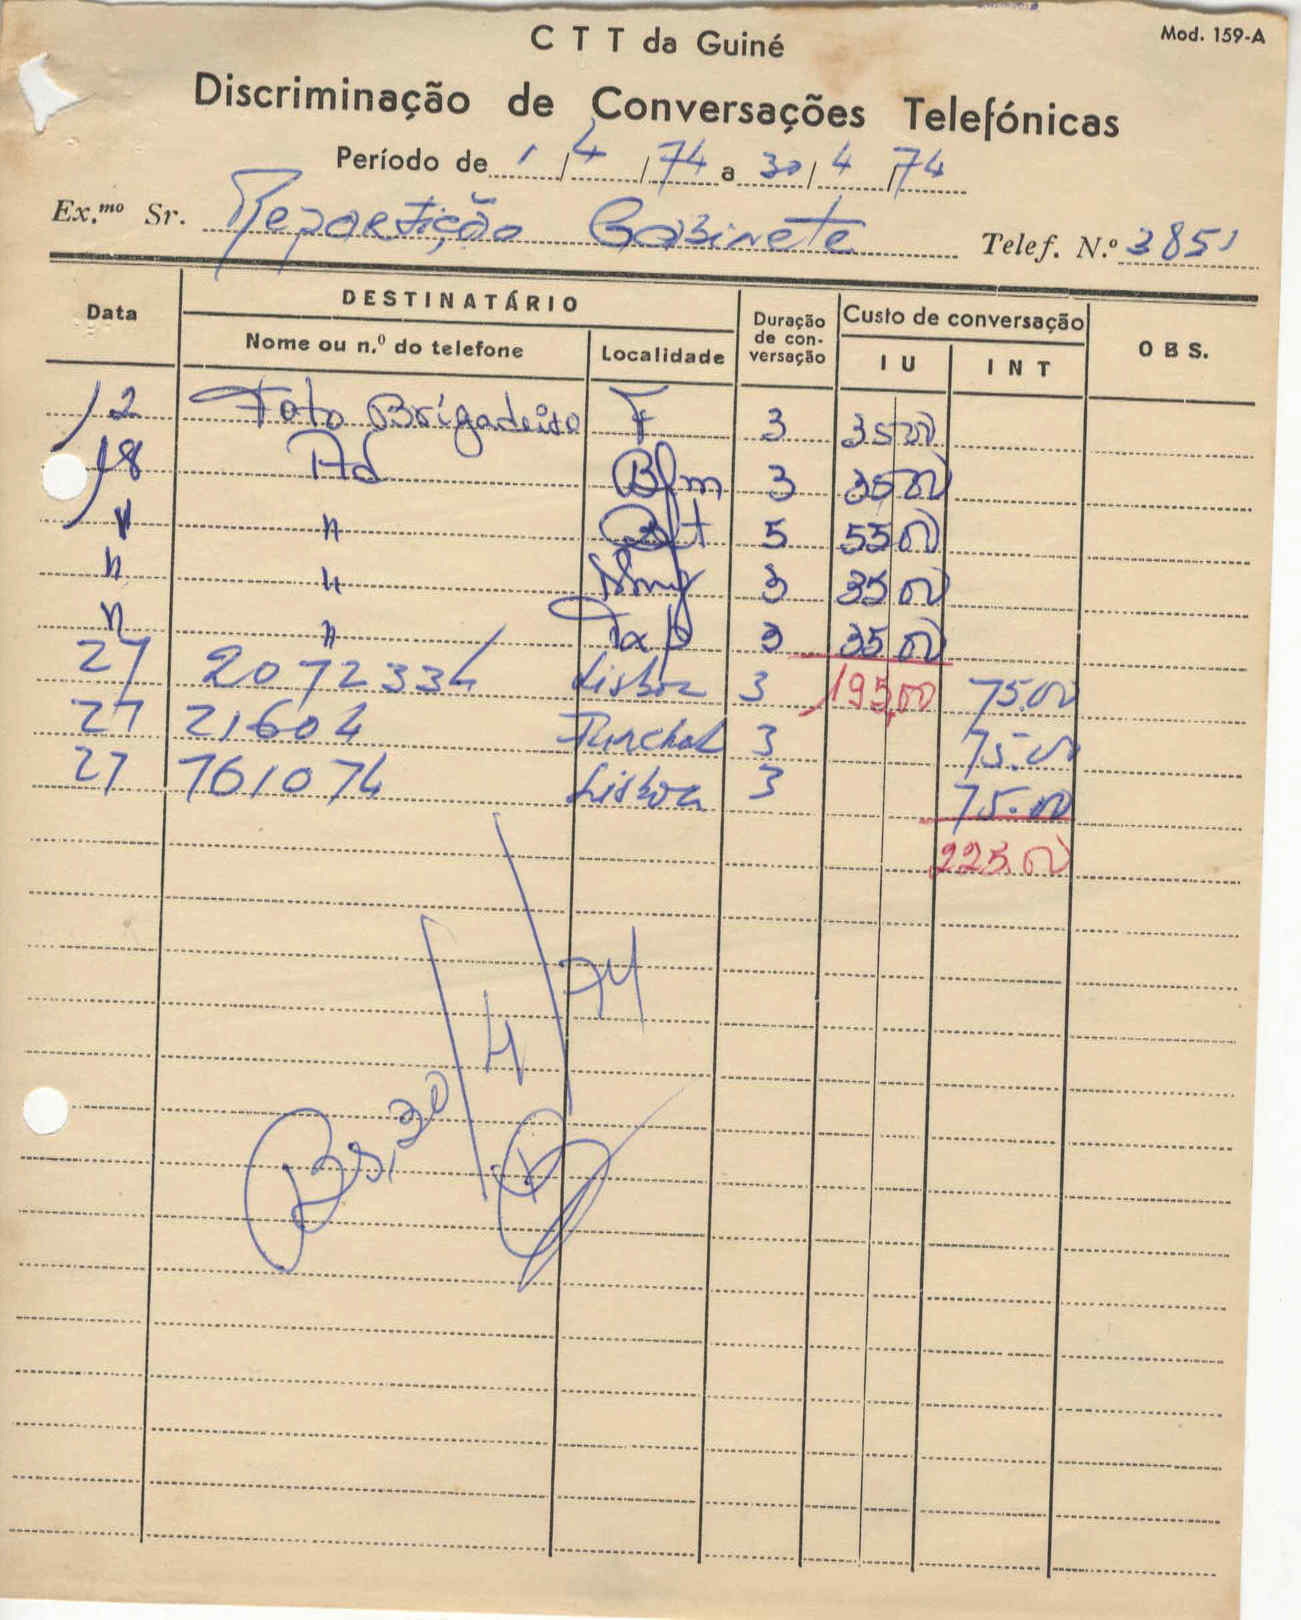 C T T da Guiné
Mod. 159-A
Discriminação de Conversações Telefónicas
Período de 1/4/74 a 30/4/74
Ex.mo Sr. Repartição Gabinete Telef. N.º 3851
Data DESTINATÁRIO Duração de con- versação Custo de conversação O B S.
Nome ou n.º do telefone Localidade I U I N T
12 Foto Brigadeiro F 3 35 00
18 Ad Bfm 3 35 00
" " 5 55 00
" " 3 35 00
" " 3 35 00
27 2072334 Lisboa 3 195,00 75.00
27 21604 Funchal 3 75.00
27 761074 Lisboa 3 75.00
225.00
Bs, 30/4/74